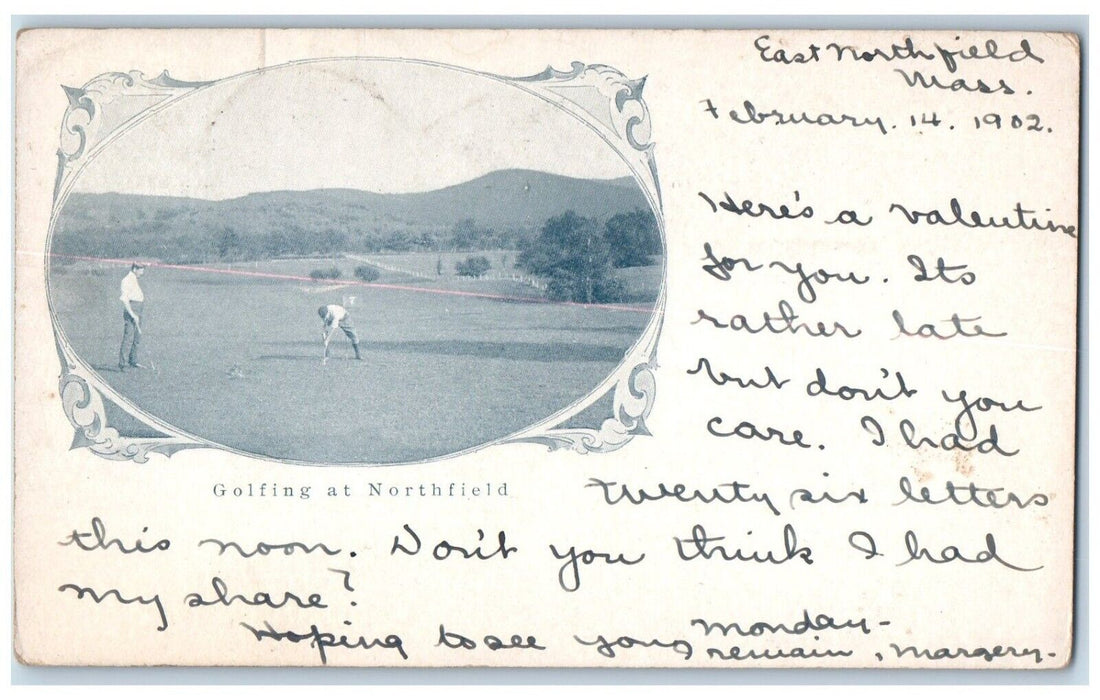 East Northfield
Mass.
February. 14. 1902.
Here's a valentine
for you. Its
rather late
but don't you
care. I had
twenty six letters
this noon. Don't you think I had
my share?
Hoping to see you monday-
remain, Margery-
Golfing at Northfield